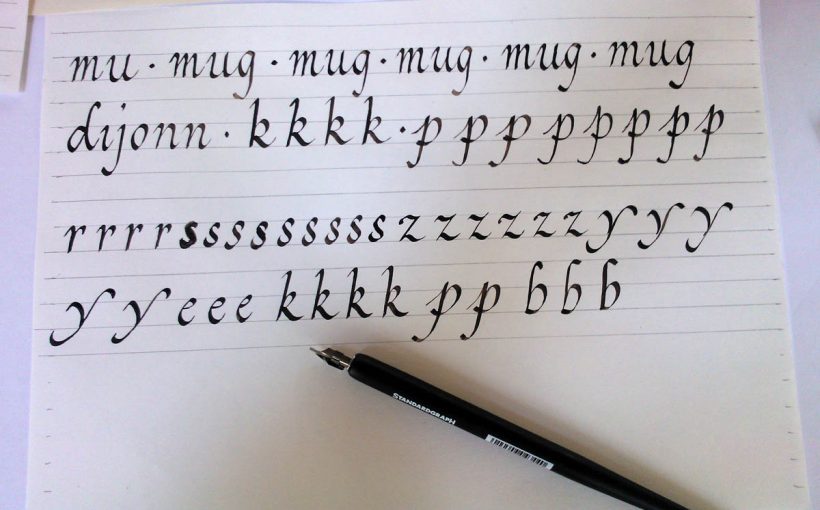 mu · mug · mug · mug · mug · mug
dijonn · k k k k · p p p p p p p p
r r r r s s s s s s s s s z z z z z z y y y
y y e e e k k k k p p b b b
STANDARDGRAPH